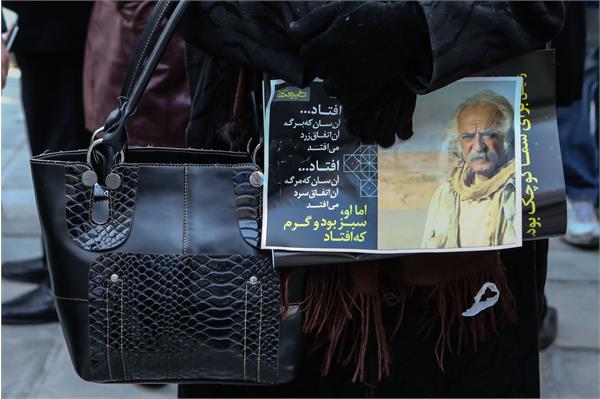 افتاد...
آن سان که برگ،
آن اتفاق زرد
می‌افتد
افتاد...
آن سان که مرگ،
آن اتفاق سرد
می‌افتد
اما او،
سبز بود و گرم
که افتاد
زمین برای شما کوچک بود